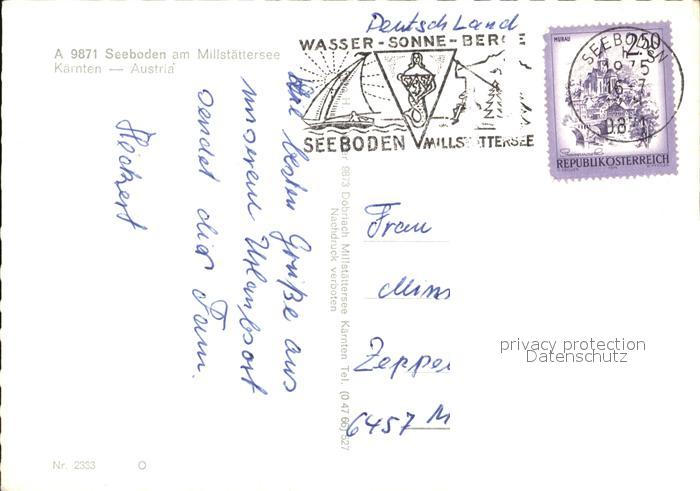 A 9871 Seeboden am Millstättersee
Kärnten — Austria
Deutschland
WASSER-SONNE-BERGE
SEEBODEN MILLSTÄTTERSEE
SEEBODEN
16.-7
MURAU
2.50
S
REPUBLIK ÖSTERREICH
Die besten Grüße aus
unserem Urlaubsort
sendet dir Fam.
9873 Döbriach Millstättersee Kärnten Tel. (0 47 66) 527
Nachdruck verboten
Frau
6457 M
privacy protection
Datenschutz
Nr. 2333